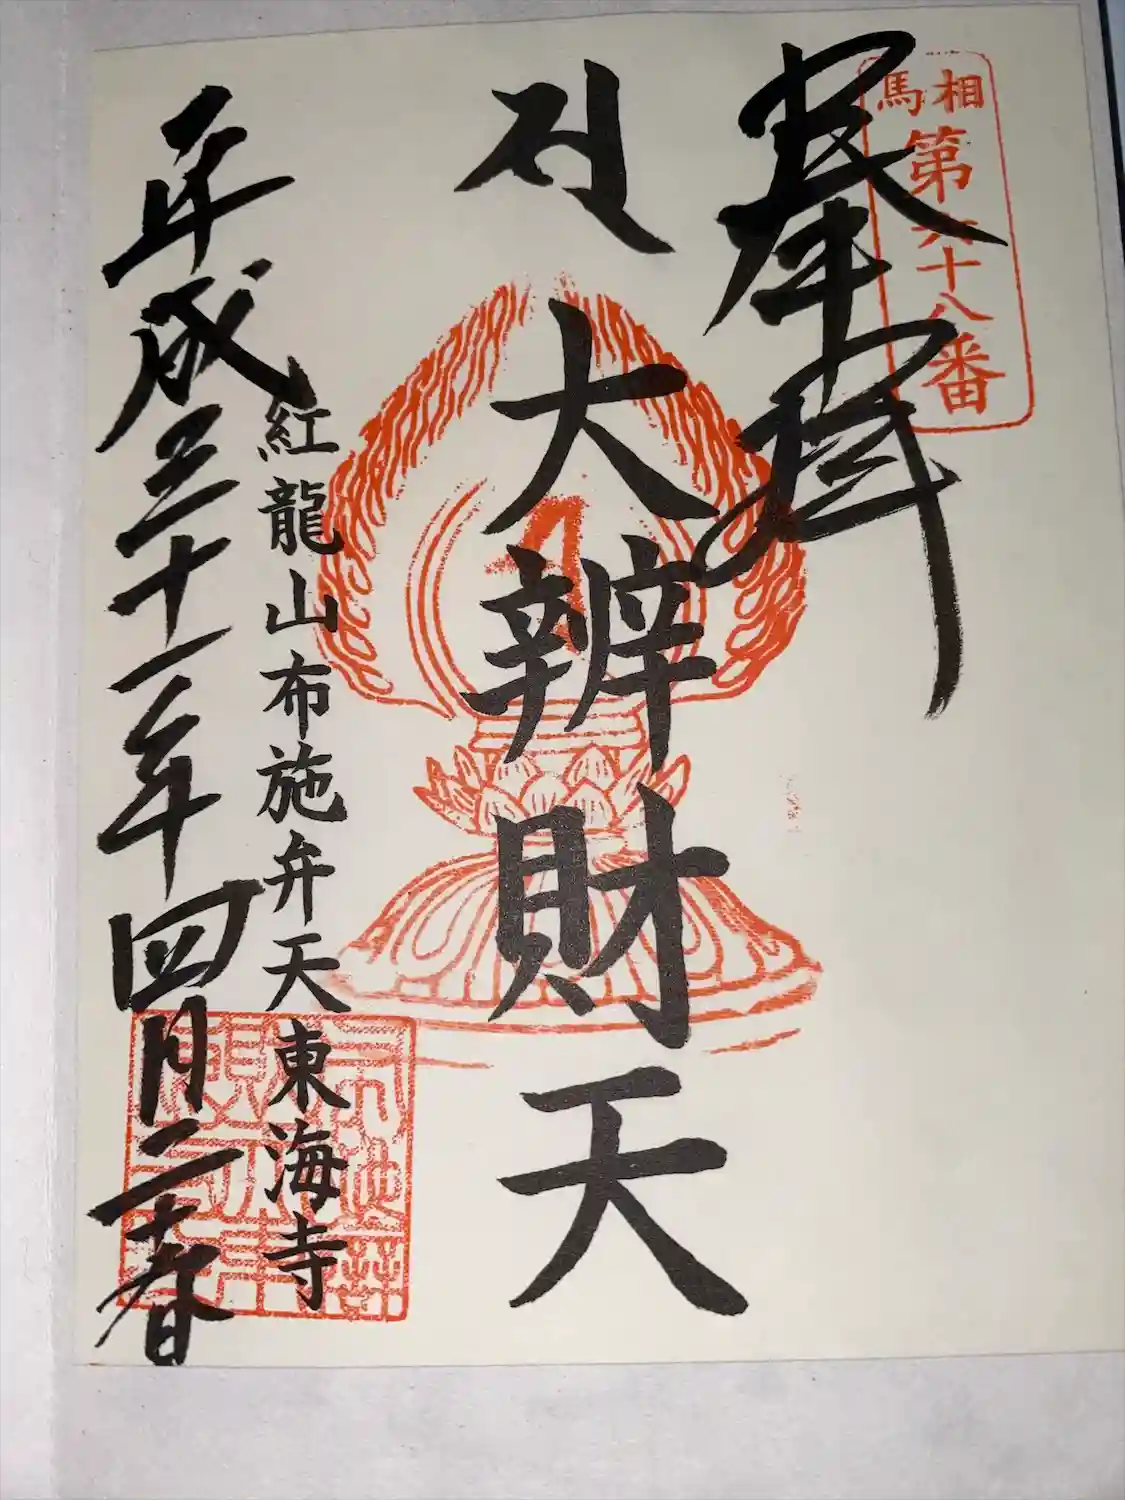 相馬
第六十八番
奉拝
大辨財天
紅龍山布施弁天東海寺
平成三十一年四月二十春